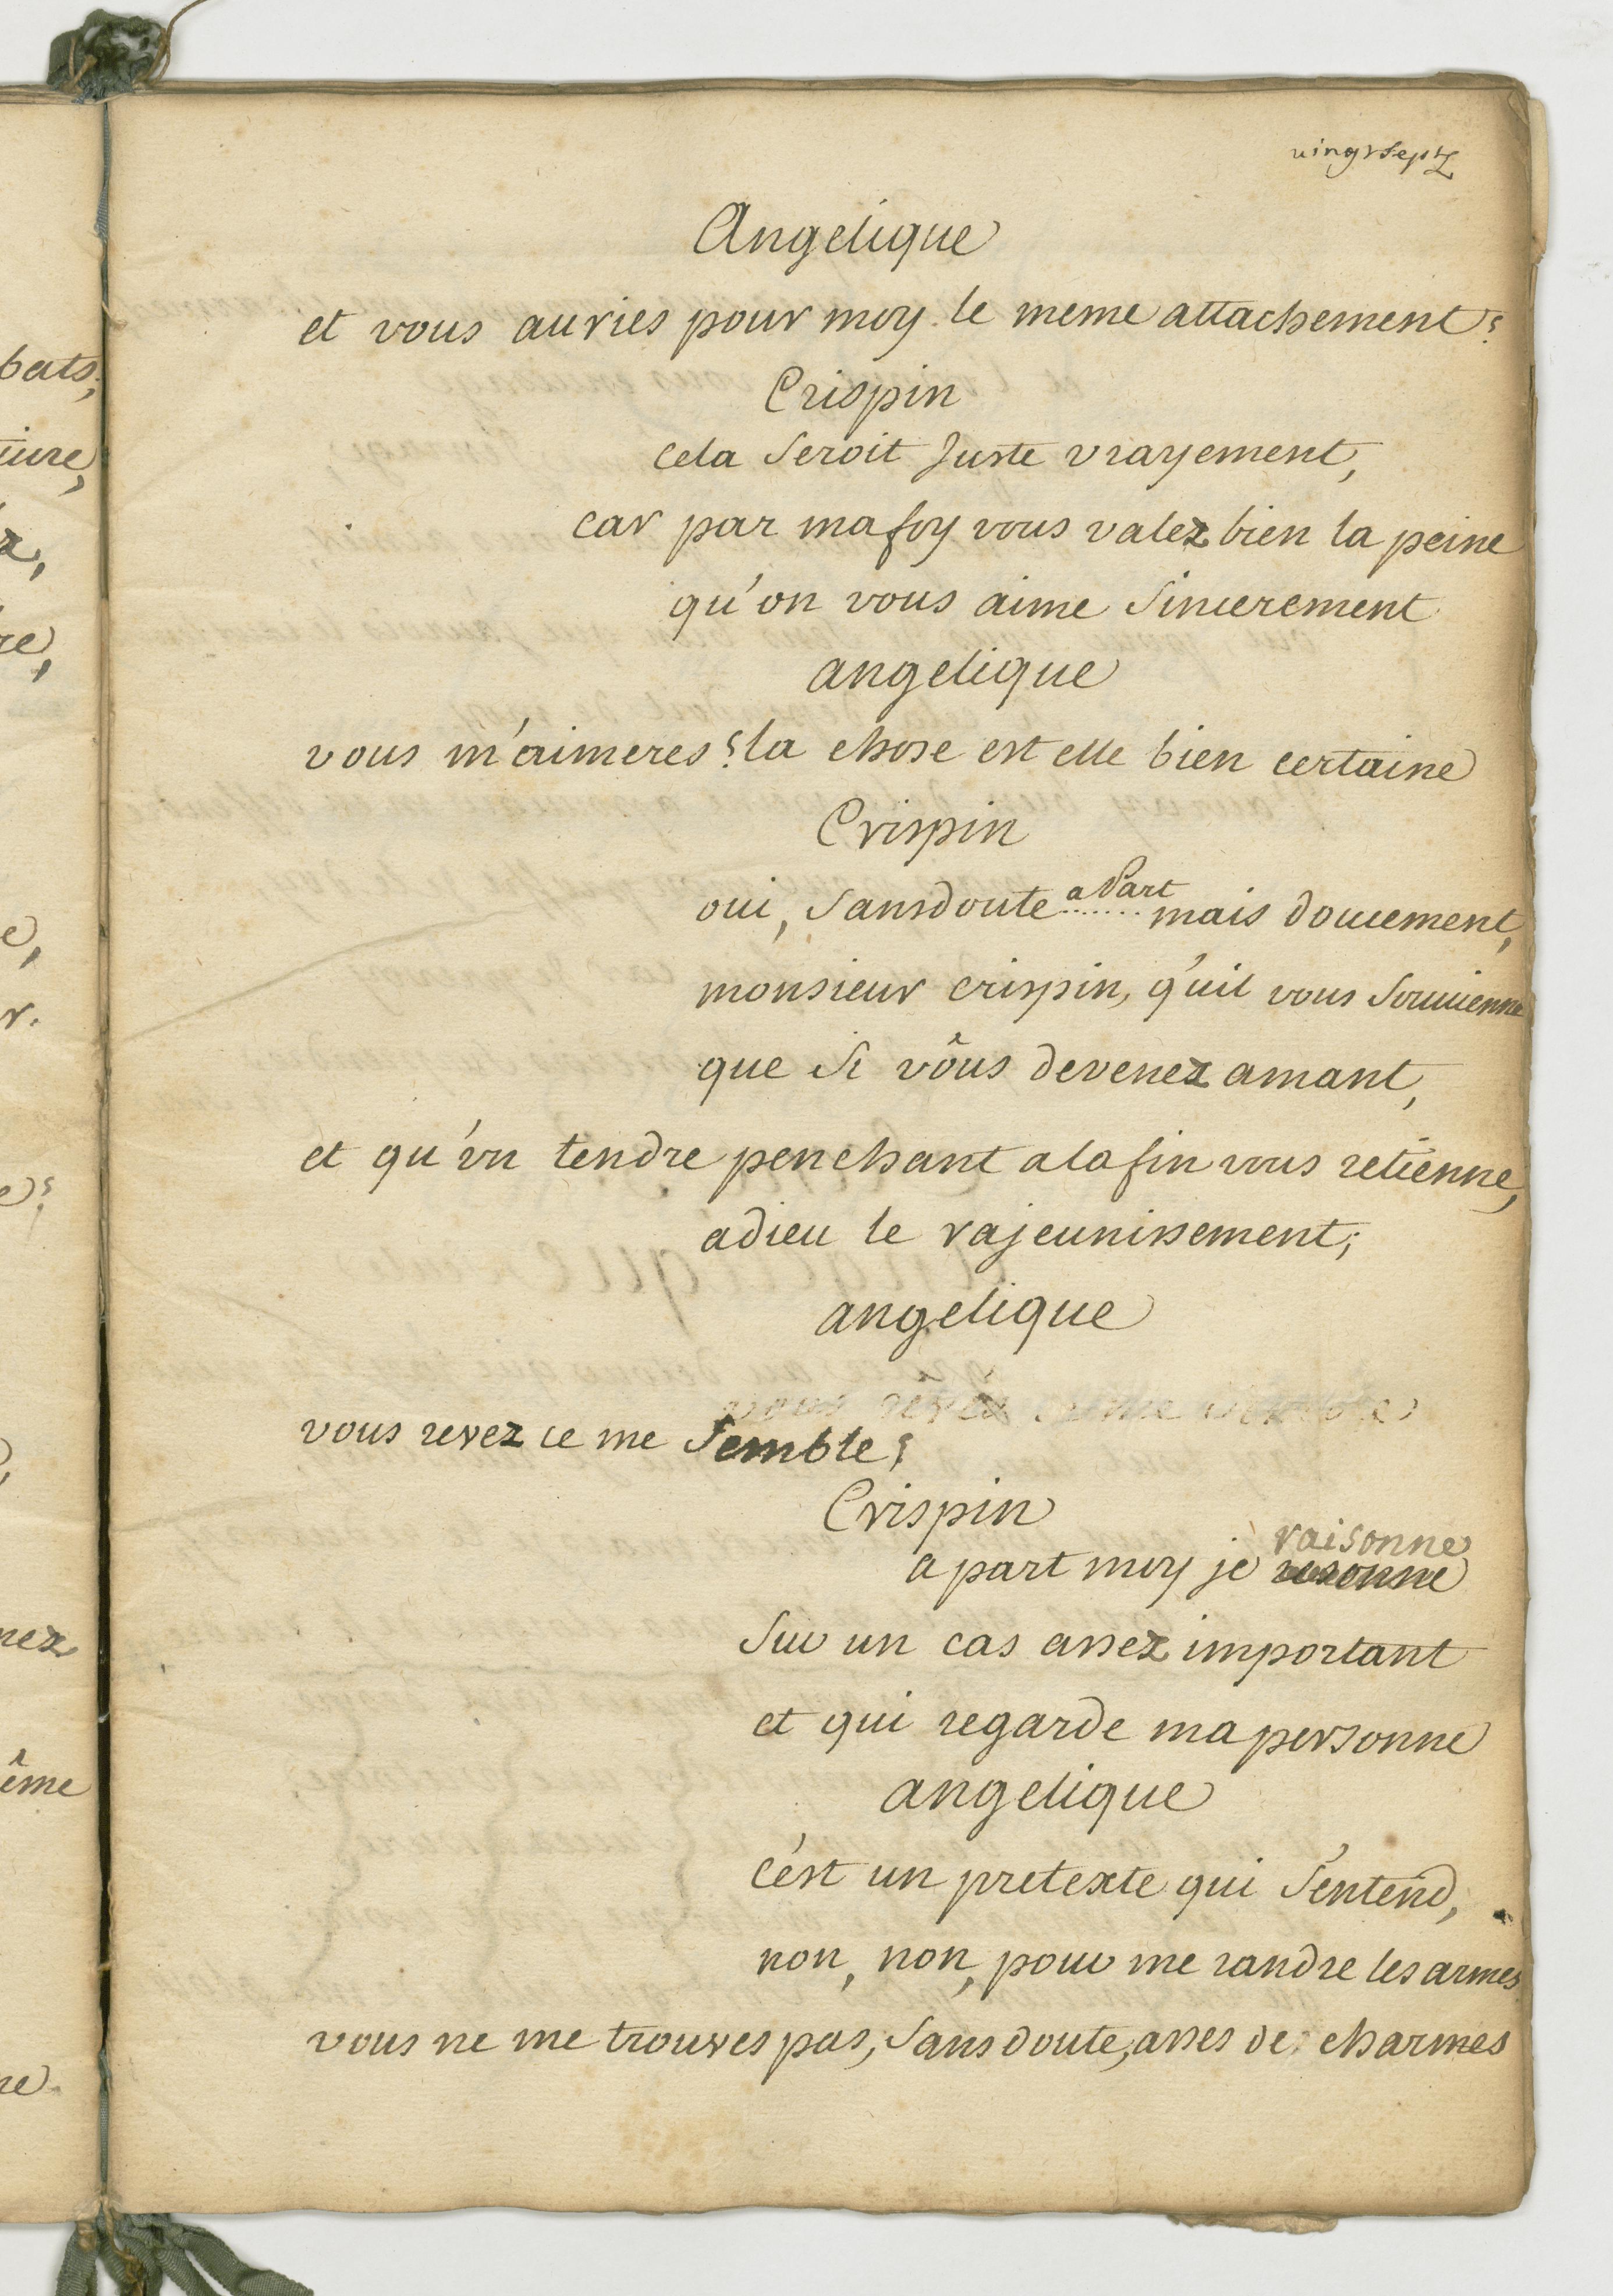 vingt sept
Angelique
et vous auries pour moy le meme attachement?
Crispin
cela seroit Juste vrayement,
car par mafoy vous valez bien la peine
qu'on vous aime sincerement
angelique
vous m'aimeres? la chose est elle bien certaine
Crispin
oui, sansdoute a Part ....... mais doucement,
monsieur crispin, q'uil vous souuienne
que si vôus devenez amant,
et qu'vn tendre penchant alafin vous retienne,
adieu le rajeunissement;
angelique
vous revez ce me semble
vous revez ce me semble?
Crispin
raisonne
a part moy je
sur un cas assez important
et qui regarde ma personne
angelique
c'est un pretexte qui s'entend,
non, non, pour me randre les armes
vous ne me trouves pas, sans doute, asses de charmes
bats;
iure,
z,
re,
e,
r.
e?
nez
ême
re.